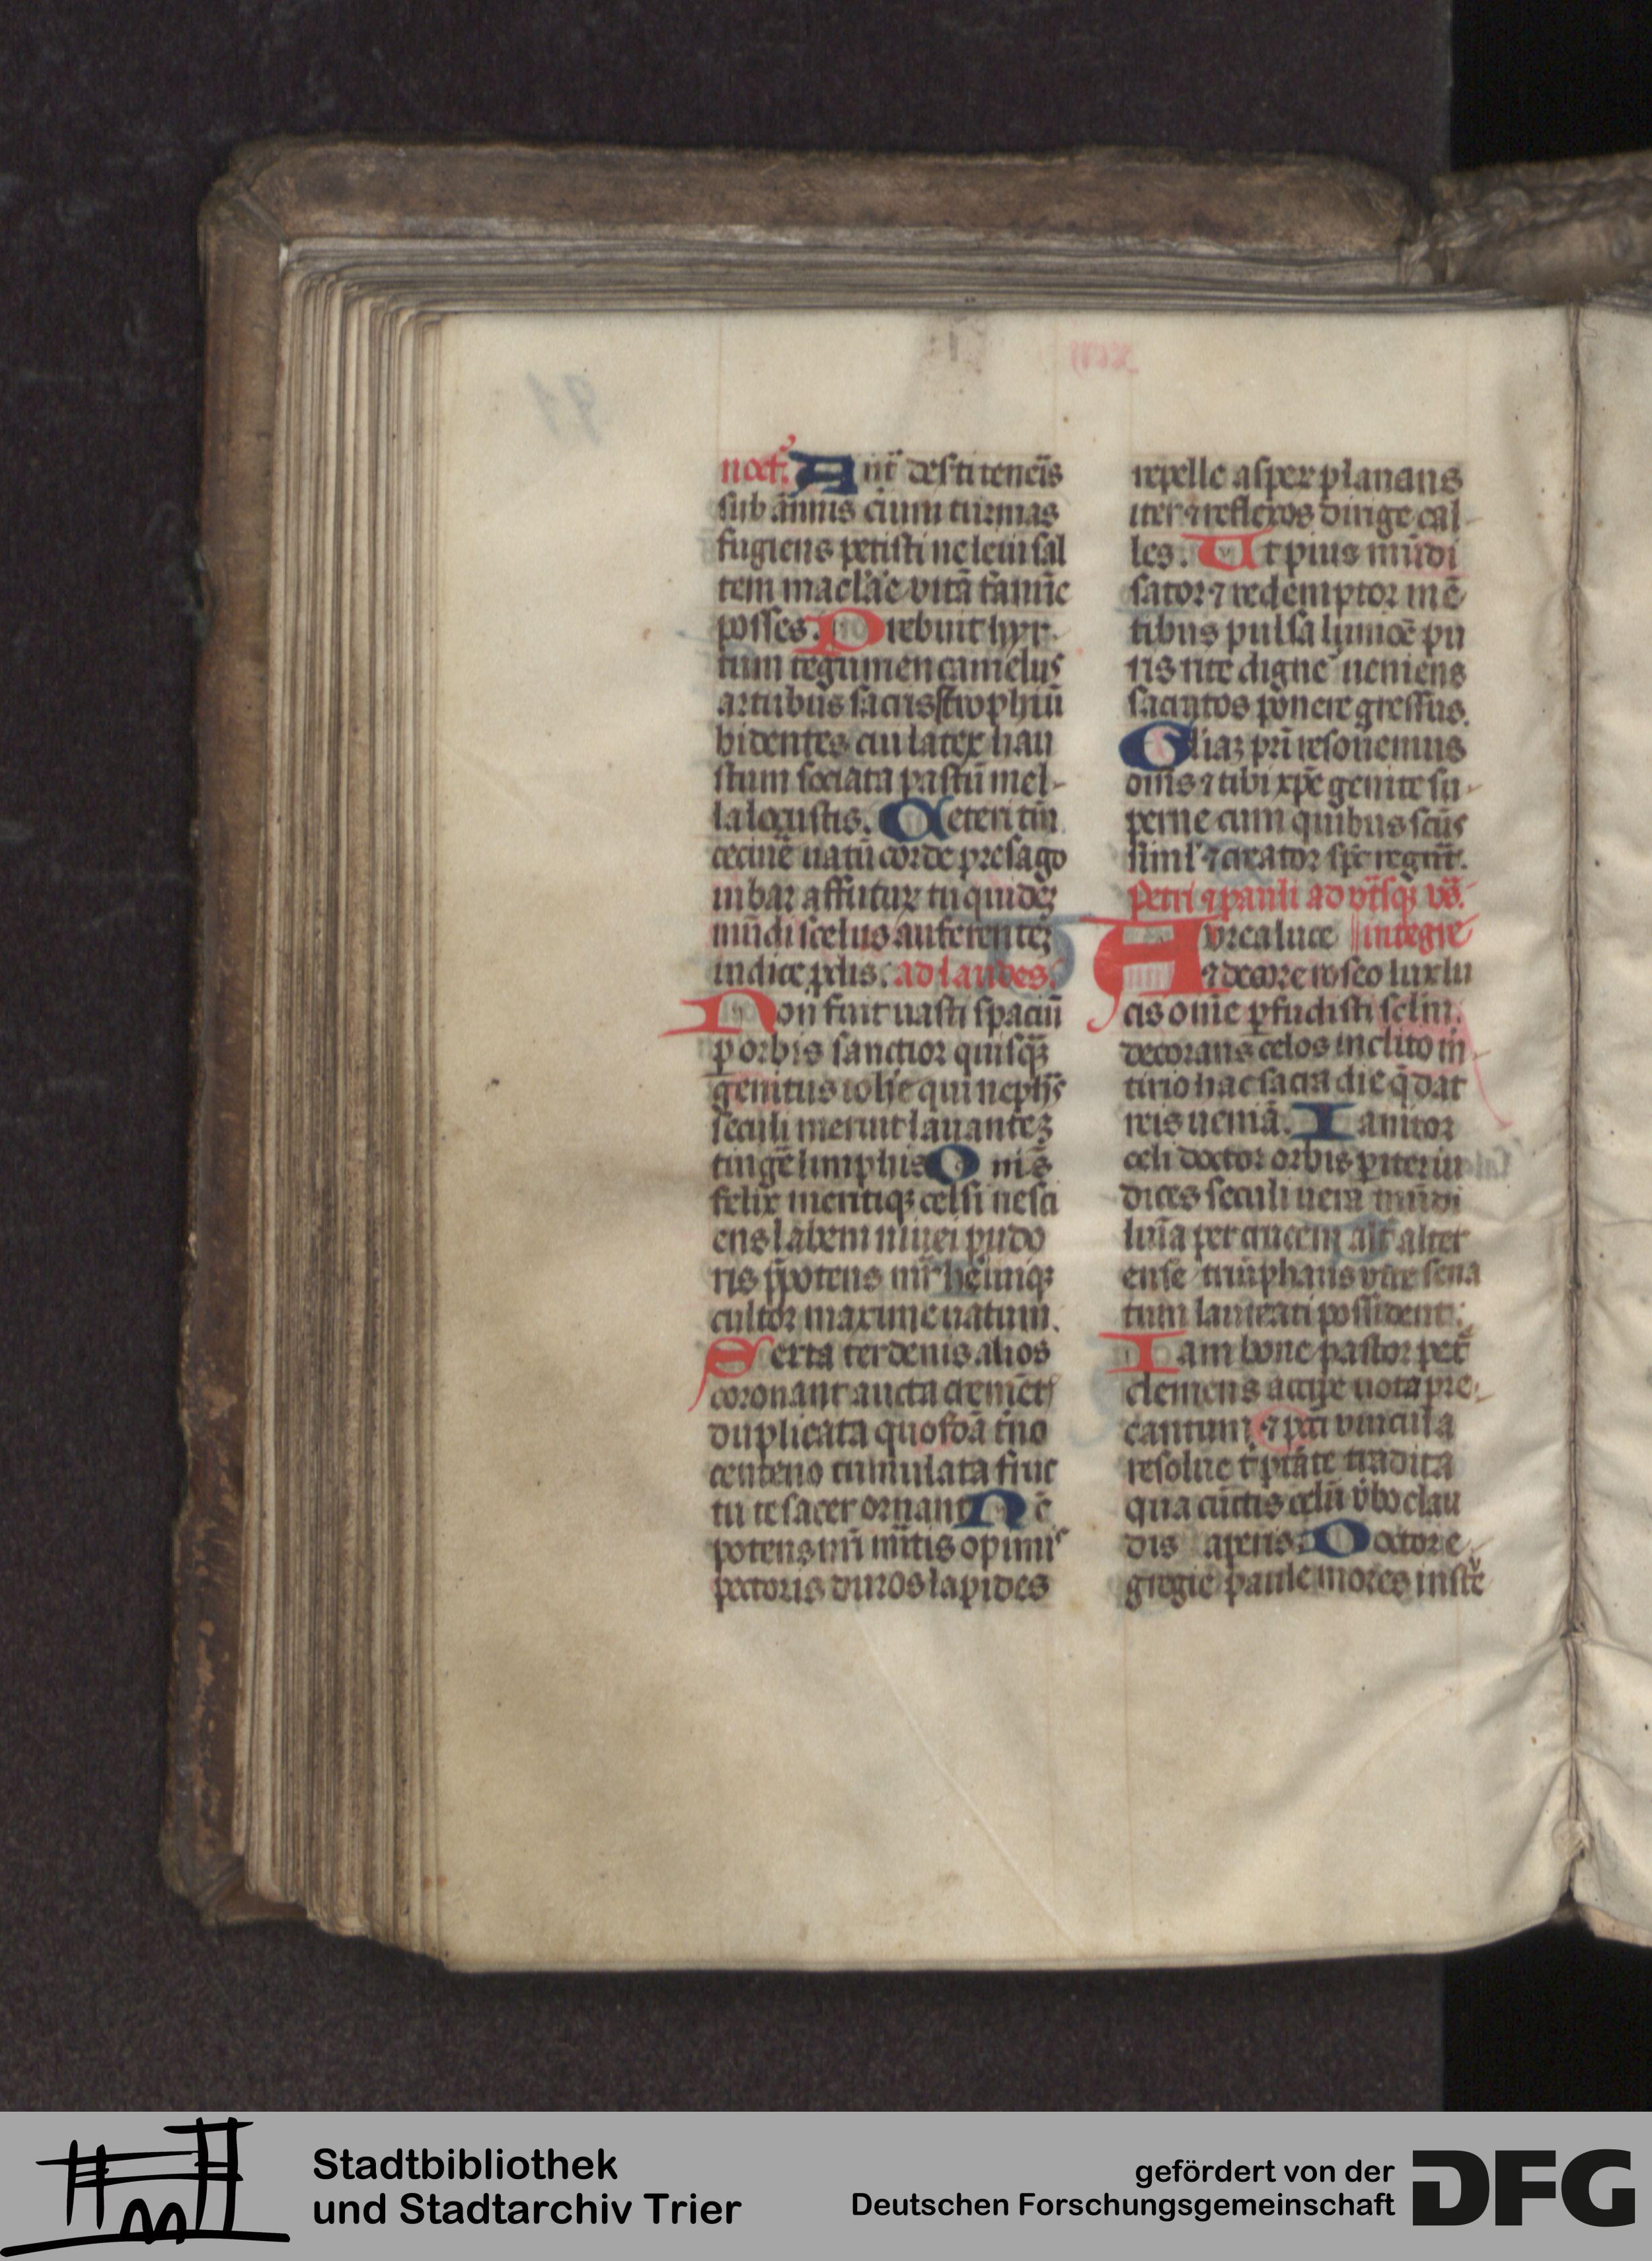 noct᷑. Ant᷑ deserti teneris
sub ānnis ciuiū turmas
fugiens petisti ne leui sal
tem maclāe vitā fāmīe
posses. Prebuit hyr
tum tegumen camelus
artubus sacris strophiū
bidentes cui latex hau
stum sociata pastū mel-
la locustis. Ceteri tm̄
cecinē uatū corde presago
iubar affuturꝝ tu quidē
mūdi scelus auferentēꝫ
indice ꝓdis. ad laudes.
Non fuit uasti spaciū
ꝑ orbis sanctior quisq̄ꝫ
genitus iohē qui nephꝰ
seculi meruit lauanteꝫ
tingē limphis O nīs
felix meritiqꝫ celsi nesci
ens labem niuei pudo
ris p̄potens mr̄ heīmiqꝫ
cultor maxime uatum.
Serta ter denis alios
coronant aucta cremēt
duplicata quosdā tno
centeno cumulata fruc
tu te sacer ornant Nc̄
potens nr̄i mītis opimiˢ
pectoris duros lapides
repelle asper planans
iter ⁊ reflexos dirige cal-
les. Ut pius mūdi
sator ⁊ redemptor mē
tibus pulsa liuiōe pu
ris rite dignēˀ ueniens
sacratos ponere gressus.
Gliaꝫ pr̄i resonemus
om̄s ⁊ tibi xp̄e genite su-
perne cum quibus scūs
siml' ⁊ creator sp̄c regnt᷑.
Petri ⁊ pauli ad vt᷑sqꝫ vs̄.
Aurea luce integre
⁊ decore roseo lux lu
cis om̄e ꝑfudisti sclm̄.
decorans celos inclito m-
tirio hac sacra die q̄ dat
reis ueniā. Ianitor
celi doctor orbis ꝑiter iu
dices seculi uera mūdi
lum̄a per crucem alt᷑ alter
ense triūphans vite sena
tum laureati possident.
Iam bone pastor petr̄
clemens accipe uota pre-
cantum ⁊ pcti vincula
resolue t᷑ ptāte tradita
qua cūctis celū v̄bo clau
dis aperis. Doctor e-
gregie paule mores instr̄
Stadtbibliothek
und Stadtarchiv Trier
gefördert von der
Deutschen Forschungsgemeinschaft
DFG